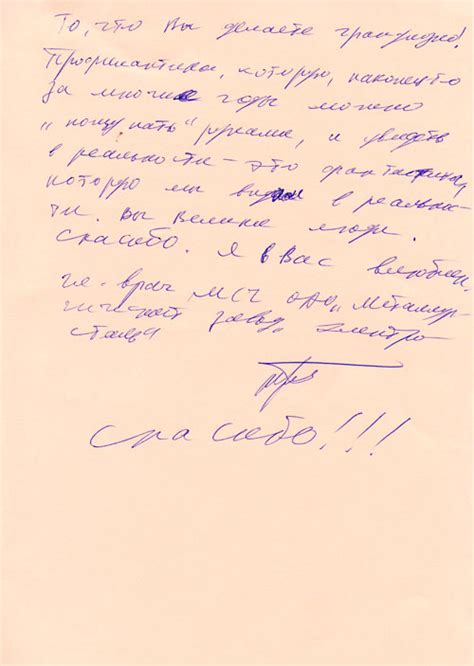 То, что Вы делаете грандиозно!
Профилактика, которую, наконец-то
за многие годы можно
„пощупать" руками, и увидеть
в реальности - это фантастика,
которую мы видим в реальнос-
ти. Вы великие люди.
Спасибо. Я в Вас влюблен.
гл. врач МСЧ ОАО „Металлур-
гический завод „Электро-
сталь"
Спасибо!!!